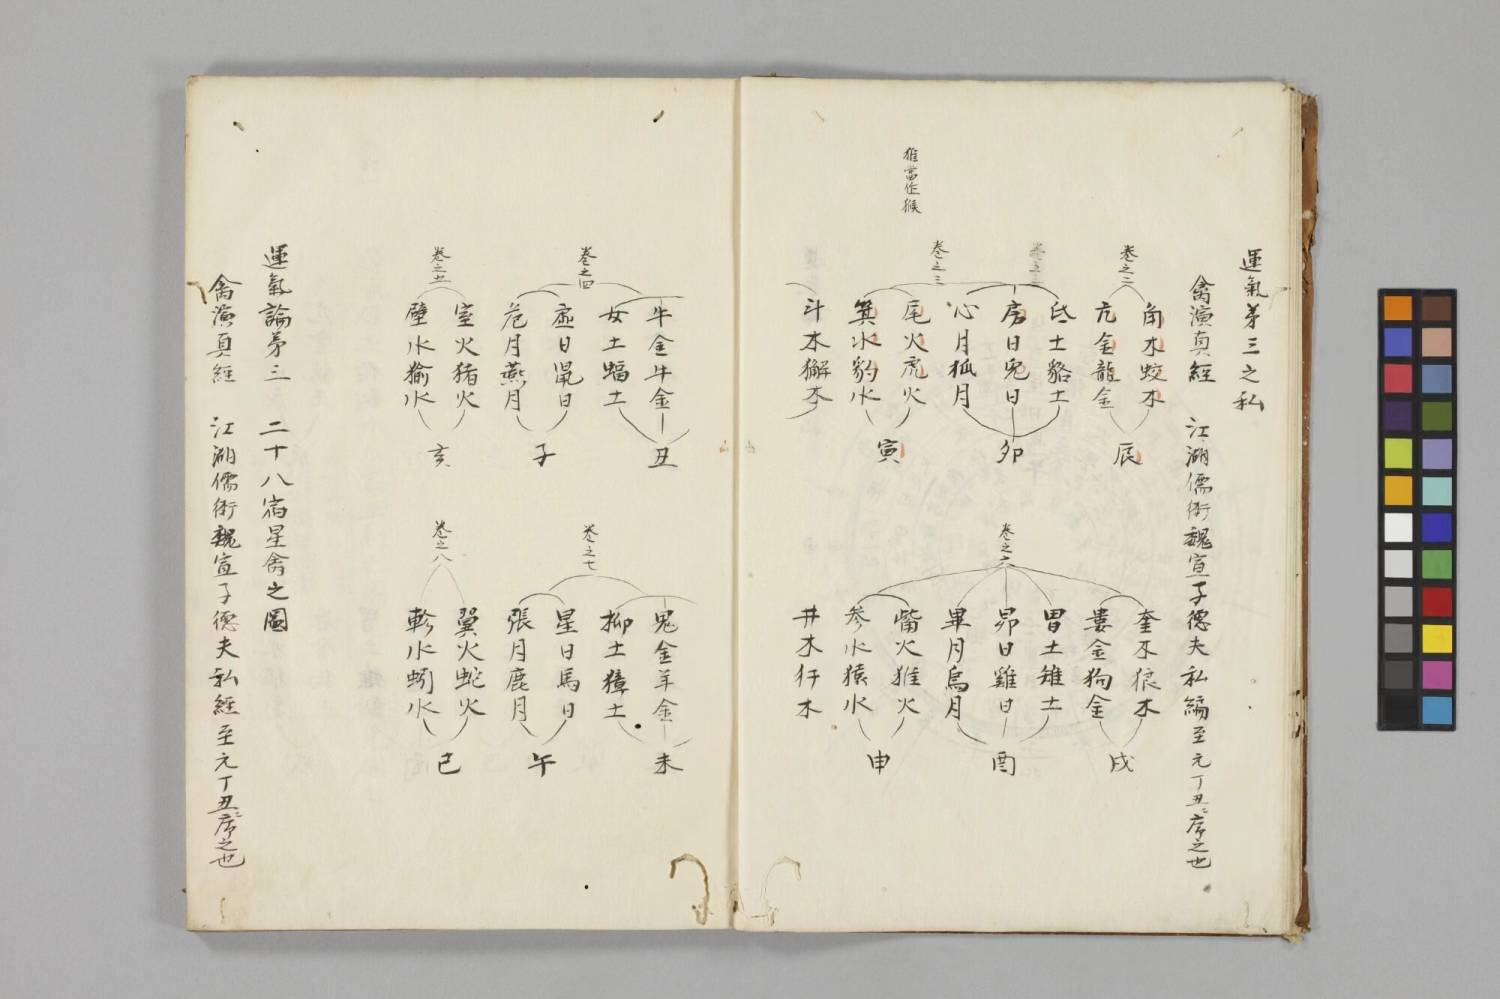 運氣第三之私
禽演真經　江湖儒術魏宣子德夫私編至元丁丑ニ序之也
卷之二
角木蛟木
亢金龍金
辰
卷之三
氐土貉土
房日兔日
心月狐月
卯
卷之三
猚當作猴
尾火虎火
箕水豹水
寅
斗木獬木
卷之六
奎木狼木
婁金狗金
戌
胃土雉土
昴日雞日
畢月烏月
酉
觜火猚火
参水猿水
申
井木犴木
牛金牛金
丑
卷之四
女土蝠土
虛日鼠日
危月燕月
子
卷之五
室火猪火
壁水貐水
亥
鬼金羊金
未
卷之七
柳土獐土
星日馬日
張月鹿月
午
卷之八
翼火蛇火
軫水蚓水
巳
運氣論第三　二十八宿星禽之圖
禽演真經　江湖儒術魏宣子德夫私經至元丁丑ニ序之也